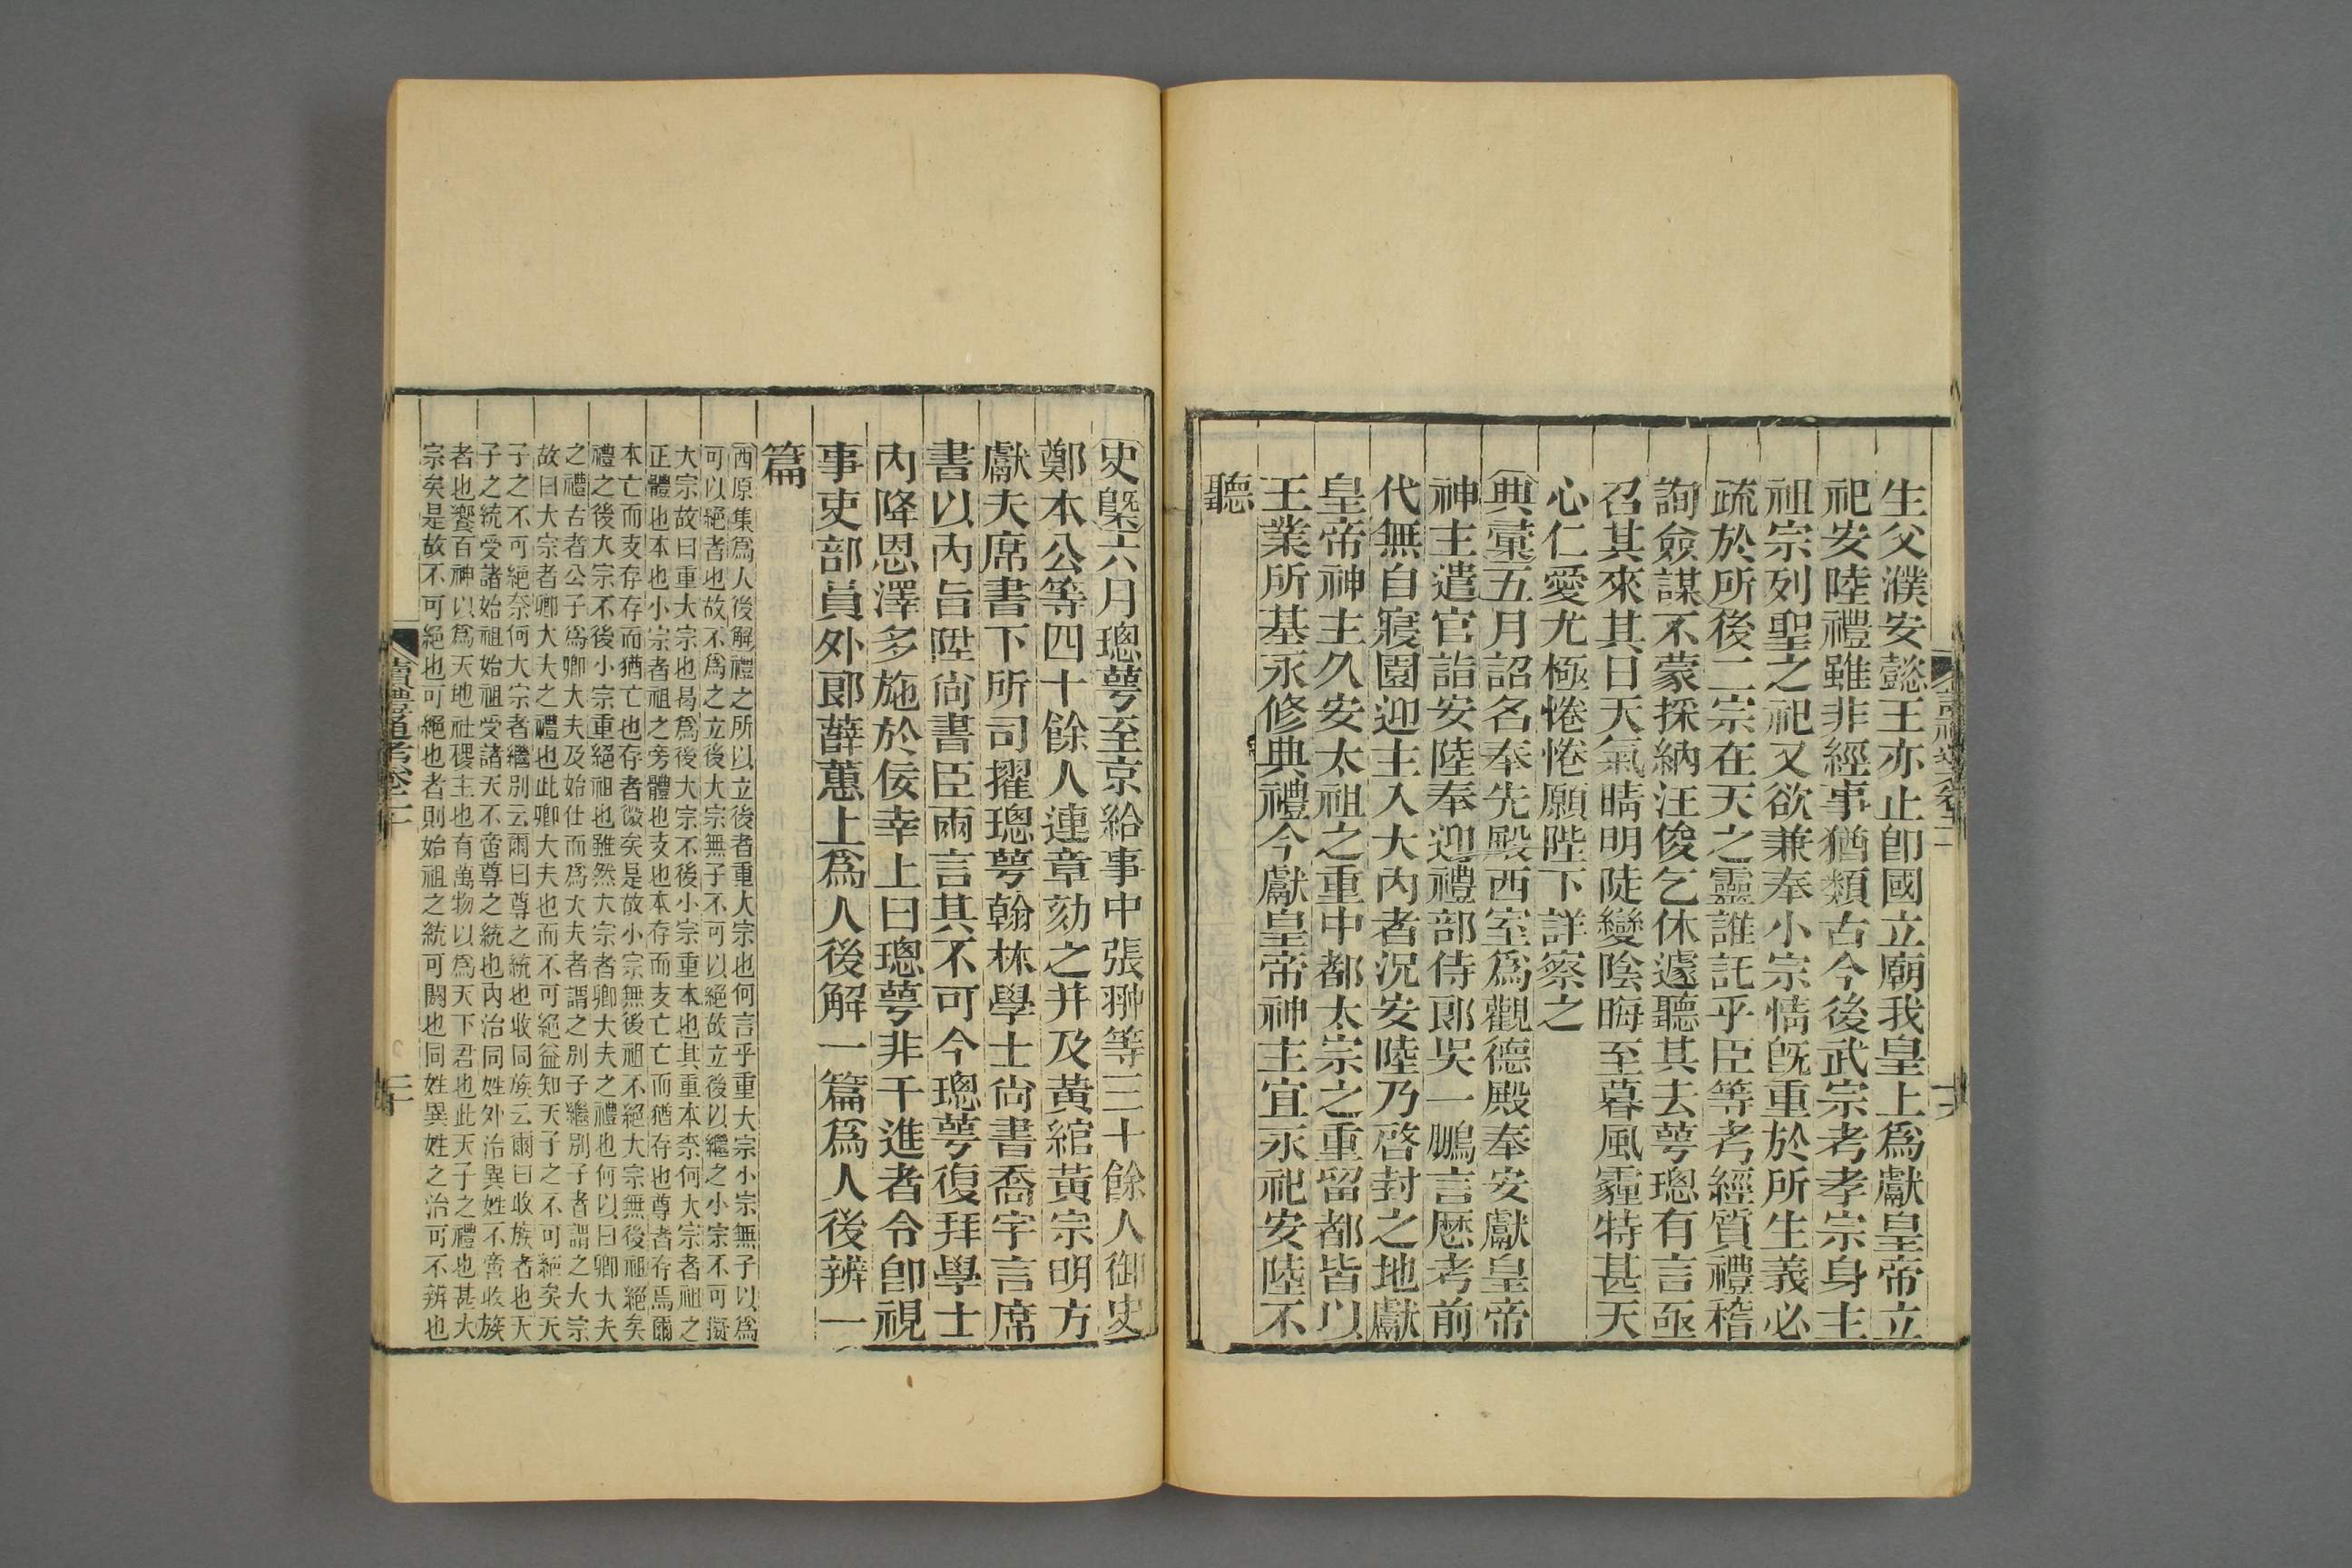 生父濮安懿王亦止卽國立廟我皇上爲獻皇帝立
祀安陸禮雖非經事猶類古今後武宗考孝宗身主
祖宗列聖之祀又欲兼奉小宗情旣重於所生義必
疏於所後二宗在天之靈誰託乎臣等考經質禮稽
詢僉謀不蒙採納汪俊乞休遽聽其去萼璁有言亟
召其來其日天氣晴明陡變陰晦至暮風霾特甚天
心仁愛尤極惓惓願陛下詳察之
典彙五月詔名奉先殿西室爲觀德殿奉安獻皇帝
神主遣官詣安陸奉迎禮部侍郎吳一鵬言歷考前
代無自寢園迎主入大內者況安陸乃啓封之地獻
皇帝神主久安太祖之重中都太宗之重留都皆以
王業所基永修典禮今獻皇帝神主宜永祀安陸不
聽
史槩六月璁萼至京給事中張翀等三十餘人御史
鄭本公等四十餘人連章劾之幷及黃綰黃宗明方
獻夫席書下所司擢璁萼翰林學士尙書喬宇言席
書以內旨陞尙書臣兩言其不可今璁萼復拜學士
內降恩澤多施於佞幸上曰璁萼非干進者令卽視
事吏部員外郎薛蕙上爲人後解一篇爲人後辨一
篇
西原集爲人後解禮之所以立後者重大宗也何言乎重大宗小宗無子以爲
可以絕者也故不爲之立後大宗無子不可以絕故立後以繼之小宗不可擬
大宗故曰重大宗也曷爲後大宗不後小宗重本也其重本柰何大宗者祖之
正體也本也小宗者祖之旁體也支也本存而支亡亡而猶存也尊者存焉爾
本亡而支存存而猶亡也存者微矣是故小宗無後祖不絕大宗無後祖絕矣
禮之後大宗不後小宗重絕祖也雖然大宗者卿大夫之禮也何以曰卿大夫
之禮古者公子爲卿大夫及始仕而爲大夫者謂之別子繼別子者謂之大宗
故曰大宗者卿大夫之禮也此卿大夫也而不可絕益知天子之不可絕矣天
子之不可絕奈何大宗者繼別云爾曰尊之統也收同族云爾曰收族者也天
子之統受諸始祖始祖受諸天不啻尊之統也內治同姓外治異姓不啻收族
者也饗百神以爲天地社稷主也有萬物以爲天下君也此天子之禮也甚大
宗矣是故不可絕也可絕也者則始祖之統可闕也同姓異姓之治可不辨也
讀禮通考卷二十
二十